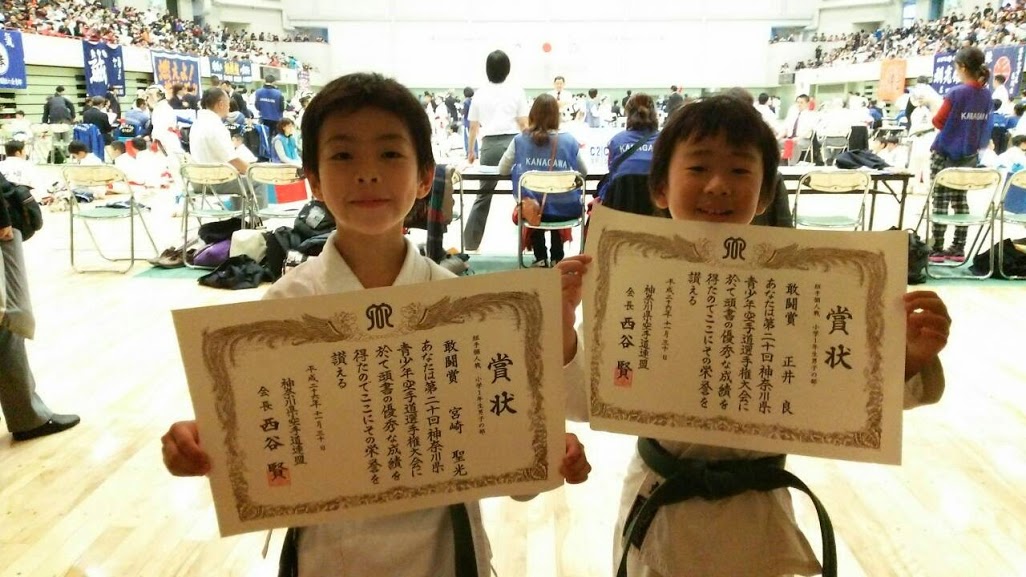 誠
燃えよ！
KANAGAWA
KANAGAWA
KANAGAWA
賞状
組手個人戦 小学1年生男子の部
敢闘賞 宮崎 聖光
あなたは第二十回神奈川県
青少年空手道選手権大会に
於て頭書の優秀な成績を
得たのでここにその栄誉を
讃える
平成二十六年十一月三十日
神奈川県空手道連盟
会長 西谷 賢
賞状
組手個人戦 小学1年生男子の部
敢闘賞 正井 良
あなたは第二十回神奈川県
青少年空手道選手権大会に
於て頭書の優秀な成績を
得たのでここにその栄誉を
讃える
平成二十六年十一月三十日
神奈川県空手道連盟
会長 西谷 賢